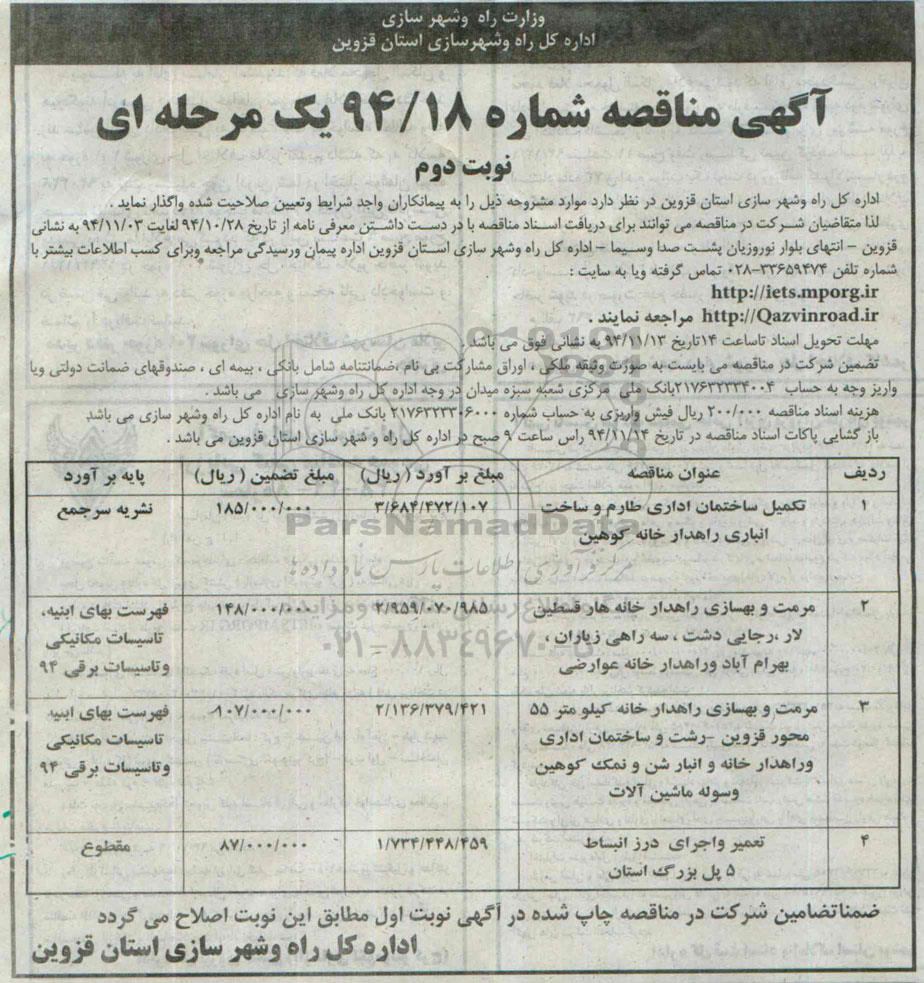 وزارت راه وشهر سازی
اداره کل راه وشهرسازی استان قزوین
آگهی مناقصه شماره ۹۴/۱۸ یک مرحله ای
نوبت دوم
اداره کل راه وشهر سازی استان قزوین در نظر دارد موارد مشروحه ذیل را به پیمانکاران واجد شرایط وتعیین صلاحیت شده واگذار نماید .
لذا متقاضیان شرکت در مناقصه می توانند برای دریافت اسناد مناقصه با در دست داشتن معرفی نامه از تاریخ ۹۴/۱۰/۲۸ لغایت ۹۴/۱۱/۰۳ به نشانی
قزوین – انتهای بلوار نوروزیان پشت صدا وسیما – اداره کل راه وشهر سازی استان قزوین اداره پیمان ورسیدگی مراجعه وبرای کسب اطلاعات بیشتر با
شماره تلفن ۳۳۶۵۹۴۷۴–۰۲۸ تماس گرفته ویا به سایت :
http://iets.mporg.ir
http://Qazvinroad.ir مراجعه نمایند .
مهلت تحویل اسناد تاساعت ۱۴ تاریخ ۹۴/۱۱/۱۳ به نشانی فوق می باشد .
تضمین شرکت در مناقصه می بایست به صورت وثیقه ملکی ، اوراق مشارکت بی نام ،ضمانتنامه شامل بانکی ، بیمه ای ، صندوقهای ضمانت دولتی ویا
واریز وجه به حساب ۲۱۷۶۳۲۳۳۴۰۰۴ بانک ملی مرکزی شعبه سبزه میدان در وجه اداره کل راه وشهر سازی می باشد .
هزینه اسناد مناقصه ۲۰۰/۰۰۰ ریال فیش واریزی به حساب شماره ۲۱۷۶۳۲۳۳۰۶۰۰۰ بانک ملی به نام اداره کل راه وشهر سازی می باشد
باز گشایی پاکات اسناد مناقصه در تاریخ ۹۴/۱۱/۱۴ راس ساعت ۹ صبح در اداره کل راه و شهر سازی استان قزوین می باشد .
ردیف عنوان مناقصه مبلغ بر آورد ( ریال) مبلغ تضمین ( ریال) پایه بر آورد
۱ تکمیل ساختمان اداری طارم و ساخت ۳/۶۸۴/۴۷۲/۱۰۷ ۱۸۵/۰۰۰/۰۰۰ نشریه سرجمع
انباری راهدار خانه کوهین
۲ مرمت و بهسازی راهدار خانه هار فسطین ۲/۹۵۹/۰۷۰/۹۸۵ ۱۴۸/۰۰۰/۰۰۰ فهرست بهای ابنیه،
لار ،رجایی دشت ، سه راهی زیاران ، تاسیسات مکانیکی
بهرام آباد وراهدار خانه عوارضی وتاسیسات برقی ۹۴
۳ مرمت و بهسازی راهدار خانه کیلو متر ۵۵ ۲/۱۳۶/۳۷۹/۴۲۱ ۱۰۷/۰۰۰/۰۰۰ فهرست بهای ابنیه
محور قزوین –رشت و ساختمان اداری تاسیسات مکانیکی
وراهدار خانه و انبار شن و نمک کوهین وتاسیسات برقی ۹۴
وسوله ماشین آلات
۴ تعمیر واجرای درز انبساط ۱/۷۳۴/۴۴۸/۴۵۹ ۸۷/۰۰۰/۰۰۰ مقطوع
۵ پل بزرگ استان
ضمناتضامین شرکت در مناقصه چاپ شده در آگهی نوبت اول مطابق این نوبت اصلاح می گردد
اداره کل راه وشهر سازی استان قزوین
ParsNamadData
مرکز فرآوری اطلاعات پارس نماد داده ها
۰۲۱-۸۸۳۴۹۶۷۰